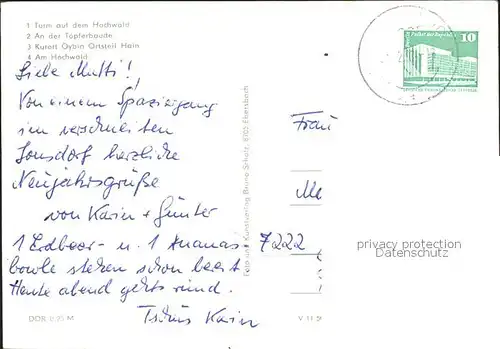 1 Turm auf dem Hochwald
2 An der Töpferbaude
3 Kurort Oybin Ortsteil Hain
4 Am Hochwald
Liebe Mutti!,
Von einem Spaziergang
im verschneiten
Jonsdorf herzliche
Neujahrsgrüße
von Karin + Günter
1 Erdbeer- u. 1 Ananas-
bowle stehen schon bereit
Heute abend gehts rund.
Tschüs Karin
DDR 0,25 M
Foto und Kunstverlag Bruno Scholz, 8705 Ebersbach
V 11 9
10
Frau
Me
7222
privacy protection
Datenschutz